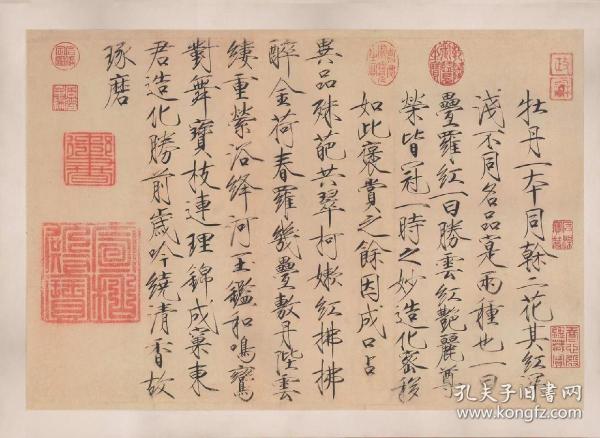 牡丹一本同榦二花其紅深
淺不同名品寔兩種也一曰
疊羅紅一曰勝雲紅艷麗尊
榮皆冠一時之妙造化密移
如此褒賞之餘因成口占
異品殊葩共翠柯嫩紅拂拂
醉金荷春羅幾疊敷丹陛雲
縷重縈浴絳河玉鑑和鳴鸞
對舞寶枝連理錦成窠東
君造化勝前歲吟繞清香故
琢磨
孔夫子旧书网
www.kongfz.com